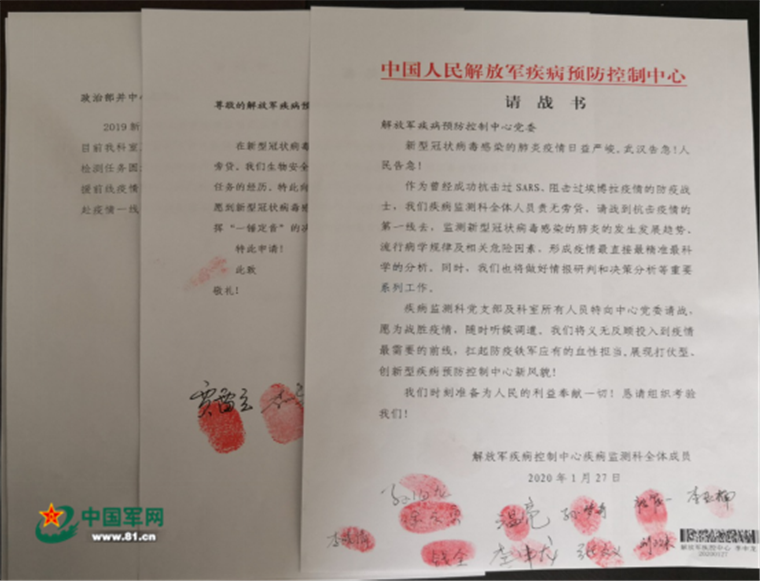 政治部并中心
2019新
目前我科室
检测任务
援前线疫情
赴疫情一线
尊敬的解放军疾病预
在新型冠状病毒
旁贷。我们生物安全
任务的经历。特此向
愿到新型冠状病毒感
挥“一锤定音”的决
特此申请!
此致
敬礼!
贾雷立
中国人民解放军疾病预防控制中心
请战书
解放军疾病预防控制中心党委
新型冠状病毒感染的肺炎疫情日益严峻。武汉告急!人
民告急!
作为曾经成功抗击过SARS、阻击过埃博拉疫情的防疫战
士,我们疾病监测科全体人员责无旁贷,请战到抗击疫情的
第一线去,监测新型冠状病毒感染的肺炎的发生发展趋势、
流行病学规律及相关危险因素,形成疫情最直接最精准最科
学的分析。同时,我们也将做好情报研判和决策分析等重要
系列工作。
疾病监测科党支部及科室所有人员特向中心党委请战,
愿为战胜疫情,随时听候调遣。我们将义无反顾投入到疫情
最需要的前线,扛起防疫铁军应有的血性担当,展现打仗型、
创新型疾病预防控制中心新风貌!
我们时刻准备为人民的利益奉献一切!恳请组织考验
我们!
解放军疾病控制中心疾病监测科全体成员
2020年1月27日
温亮
李申龙
解放军疾控中心 李申龙
20200127
中国军网
www.81.cn